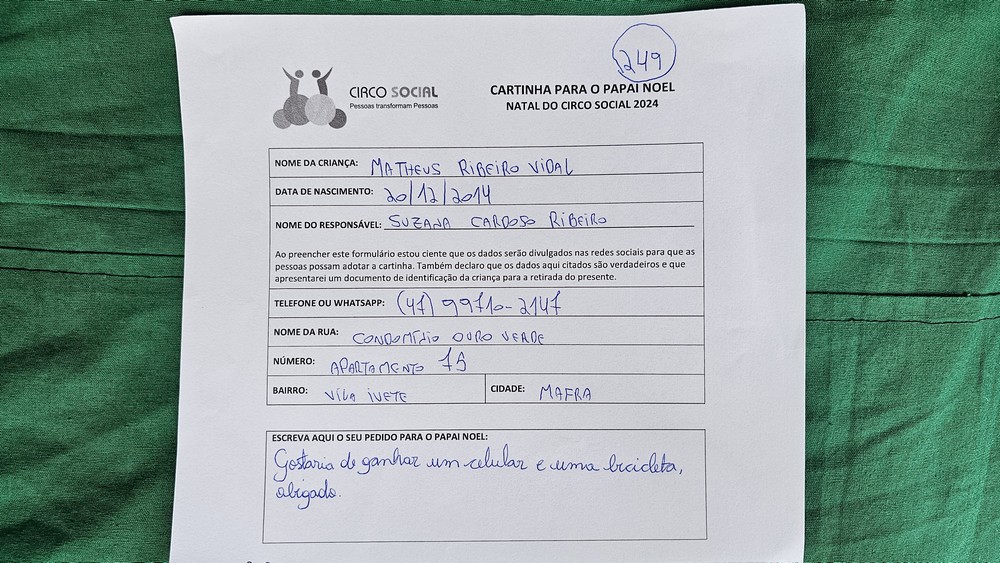 249
CIRCO SOCIAL
Pessoas transformam Pessoas
CARTINHA PARA O PAPAI NOEL
NATAL DO CIRCO SOCIAL 2024
NOME DA CRIANÇA: MATHEUS RIBEIRO VIDAL
DATA DE NASCIMENTO: 20/12/2014
NOME DO RESPONSÁVEL: SUZANA CARDOSO RIBEIRO
Ao preencher este formulário estou ciente que os dados serão divulgados nas redes sociais para que as
pessoas possam adotar a cartinha. Também declaro que os dados aqui citados são verdadeiros e que
apresentarei um documento de identificação da criança para a retirada do presente.
TELEFONE OU WHATSAPP: (47) 99710-2147
NOME DA RUA: CONDOMÍNIO OURO VERDE
NÚMERO: APARTAMENTO 75
BAIRRO: VILA IVETE CIDADE: MAFRA
ESCREVA AQUI O SEU PEDIDO PARA O PAPAI NOEL:
Gostaria de ganhar um celular e uma bicicleta,
obrigado.